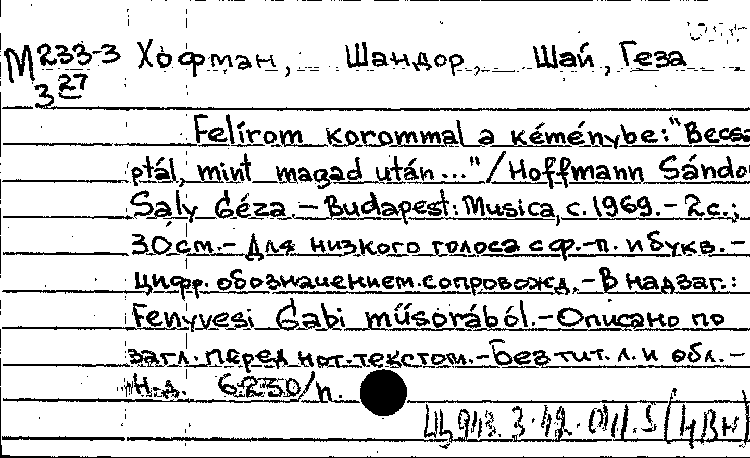 М 233-3 Хофман, Шандор, Шай, Геза
3 27
Felírom korommal a kéménybe: "Becsa
ptál, mint magad után..." / Hoffmann Sándo
Saly Géza. – Budapest: Musica, c. 1969. – 2 с.;
30 см. – Для низкого голоса с ф.-п. и букв. –
цифр. обозначением сопровожд. – В надзаг.:
Fenyvesi Gabi műsorából. – Описано по
загл. перед нот. текстом. – Без тит. л. и обл. –
Н.д. 6230/h.